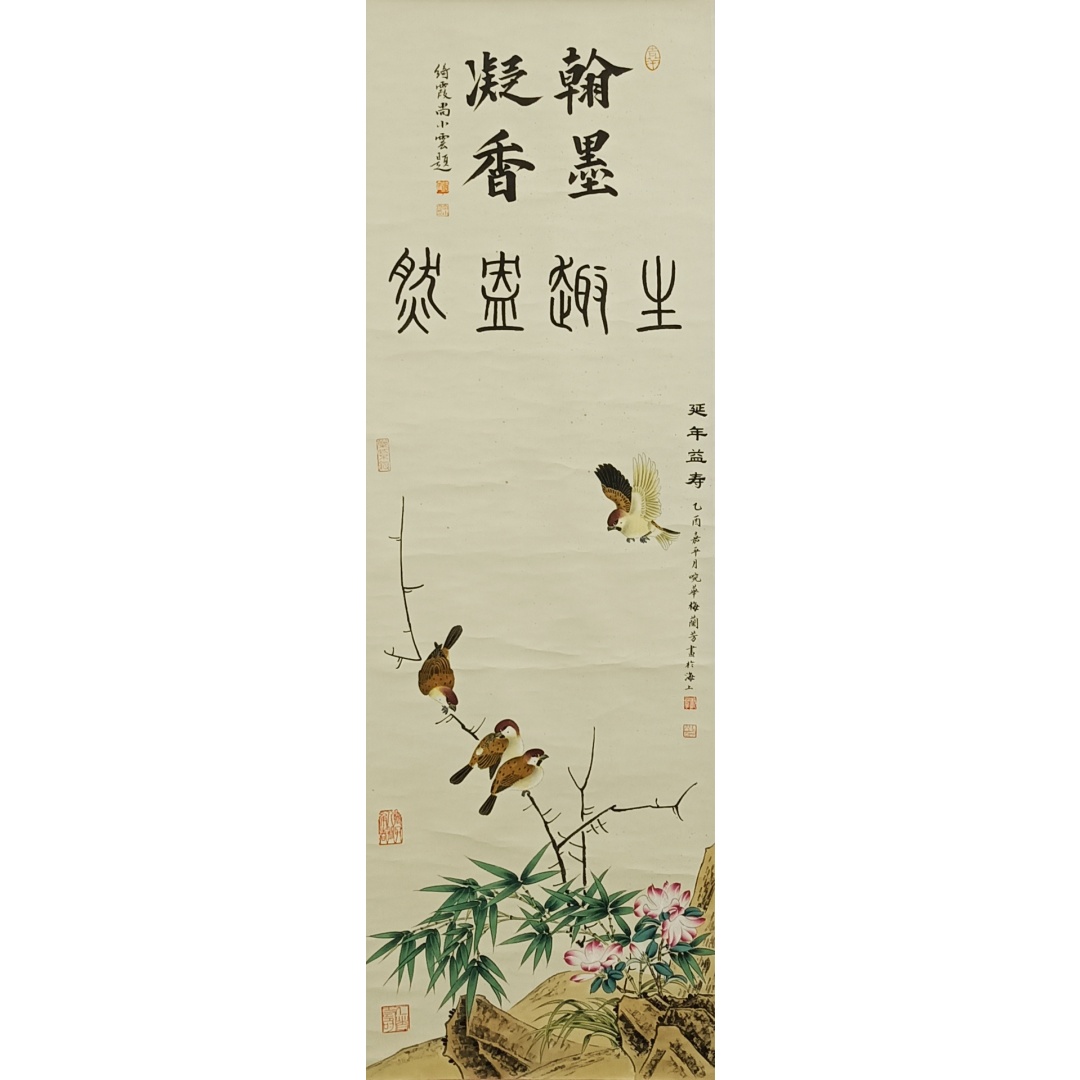 翰墨
凝香
綺霞尚小雲題
生趣盎然
延年益寿
乙丙嘉平月畹華梅蘭芳畫於海上